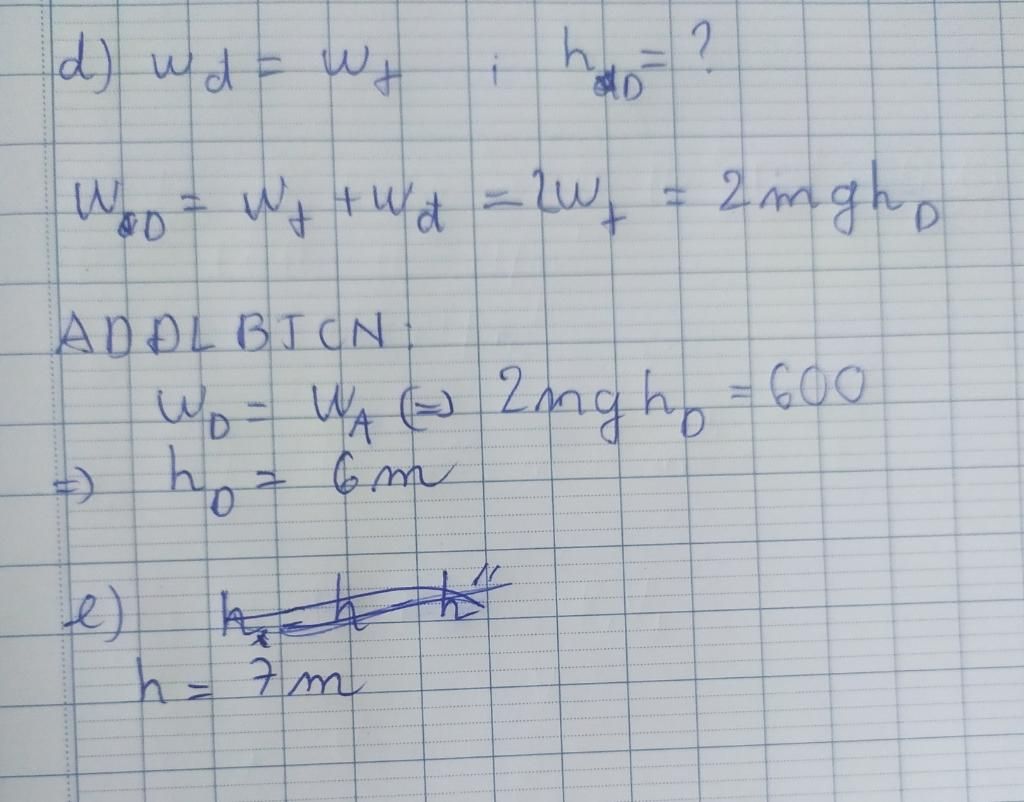 d) Wd = Wt ; hD = ?
WD = Wt + Wd = 2Wt = 2mghD
ADDLBTCN:
WD = WA (=) 2mghD = 600
=) hD = 6m
e)
h = 7m